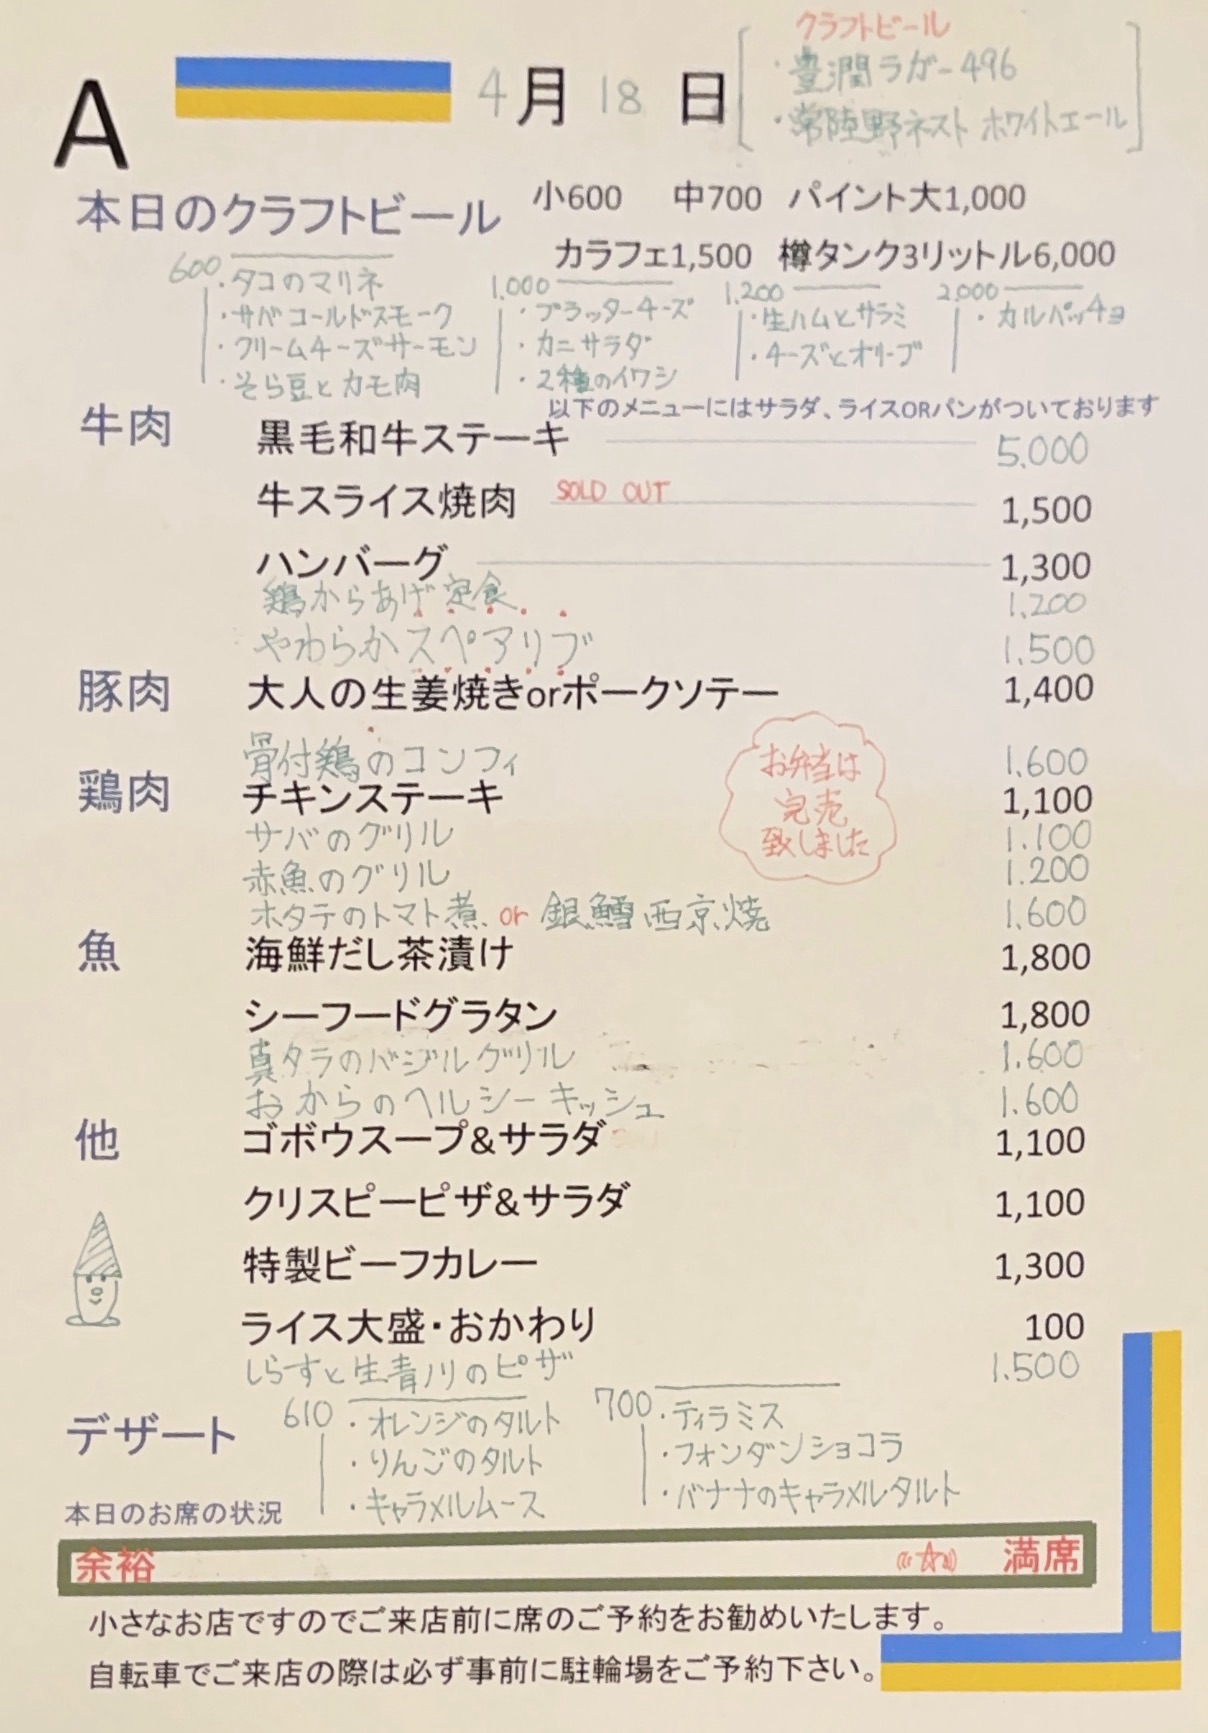 A
4月18日
クラフトビール
・豊潤ラガー496
・常陸野ネスト ホワイトエール
本日のクラフトビール 小600 中700 パイント大1,000
カラフェ1,500 樽タンク3リットル6,000
600
・タコのマリネ
・サバコールドスモーク
・クリームチーズサーモン
・そら豆とカモ肉
1.000
・ブラッターチーズ
・カニサラダ
・2種のイワシ
1.200
・生ハムとサラミ
・チーズとオリーブ
2.000
・カルパッチョ
以下のメニューにはサラダ、ライスORパンがついております
牛肉
黒毛和牛ステーキ 5.000
牛スライス焼肉 SOLD OUT 1,500
ハンバーグ 1,300
鶏からあげ定食 1.200
やわらかスペアリブ 1.500
豚肉
大人の生姜焼きorポークソテー 1,400
骨付鶏のコンフィ 1.600
お弁当は
完売
致しました
鶏肉
チキンステーキ 1,100
サバのグリル 1.100
赤魚のグリル 1.200
ホタテのトマト煮 or 銀鱈西京焼 1.600
魚
海鮮だし茶漬け 1,800
シーフードグラタン 1,800
真タラのバジルグリル 1.600
おからのヘルシーキッシュ 1.600
他
ゴボウスープ&サラダ 1,100
クリスピーピザ&サラダ 1,100
特製ビーフカレー 1,300
ライス大盛・おかわり 100
しらすと生青川のピザ 1.500
デザート
610
・オレンジのタルト
・りんごのタルト
・キャラメルムース
700
・ティラミス
・フォンダンショコラ
・バナナのキャラメルタルト
本日のお席の状況
余裕 満席
小さなお店ですのでご来店前に席のご予約をお勧めいたします。
自転車でご来店の際は必ず事前に駐輪場をご予約下さい。